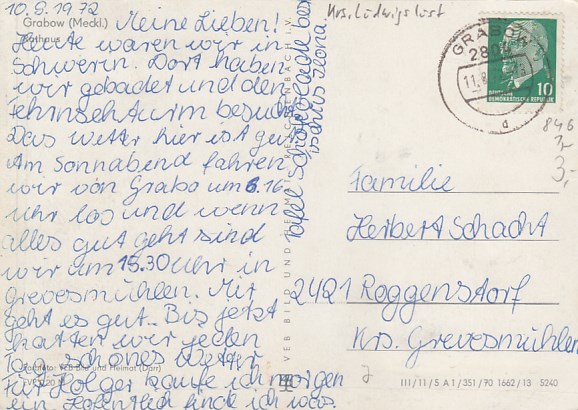 10.8.1972
Grabow (Meckl.)
Rathaus
Meine Lieben!
Heute waren wir in
Schwerin. Dort haben
wir gebadet und den
Fehnsehturm besucht
Das Wetter hier ist gut
Am Sonnabend fahren
wir von Grabo um 6.16
uhr los und wenn
alles gut geht sind
wir um 15.30 uhr in
Grevesmühlen. Mir
geht es gut. Bis jetzt
hatten wir jeden
Tag schönes Wetter
Für Holger kaufe ich morgen
ein. Hofentlich finde ich was.
Tafel Schokolade
Tschüß Ilona
Krs. Ludwigslust
GRABOW
2804
10
DEUTSCHE
DEMOKRATISCHE REPUBLIK
a
846
3,-
Familie
Herbert Schacht
2421 Roggenstorf
Krs. Grevesmühlen
VEB BILD UND HEIMAT REICHENBACH I. V.
Farbfoto: VEB Bild und Heimat (Darr)
III/11/5 A 1/351/70 1662/13 5240